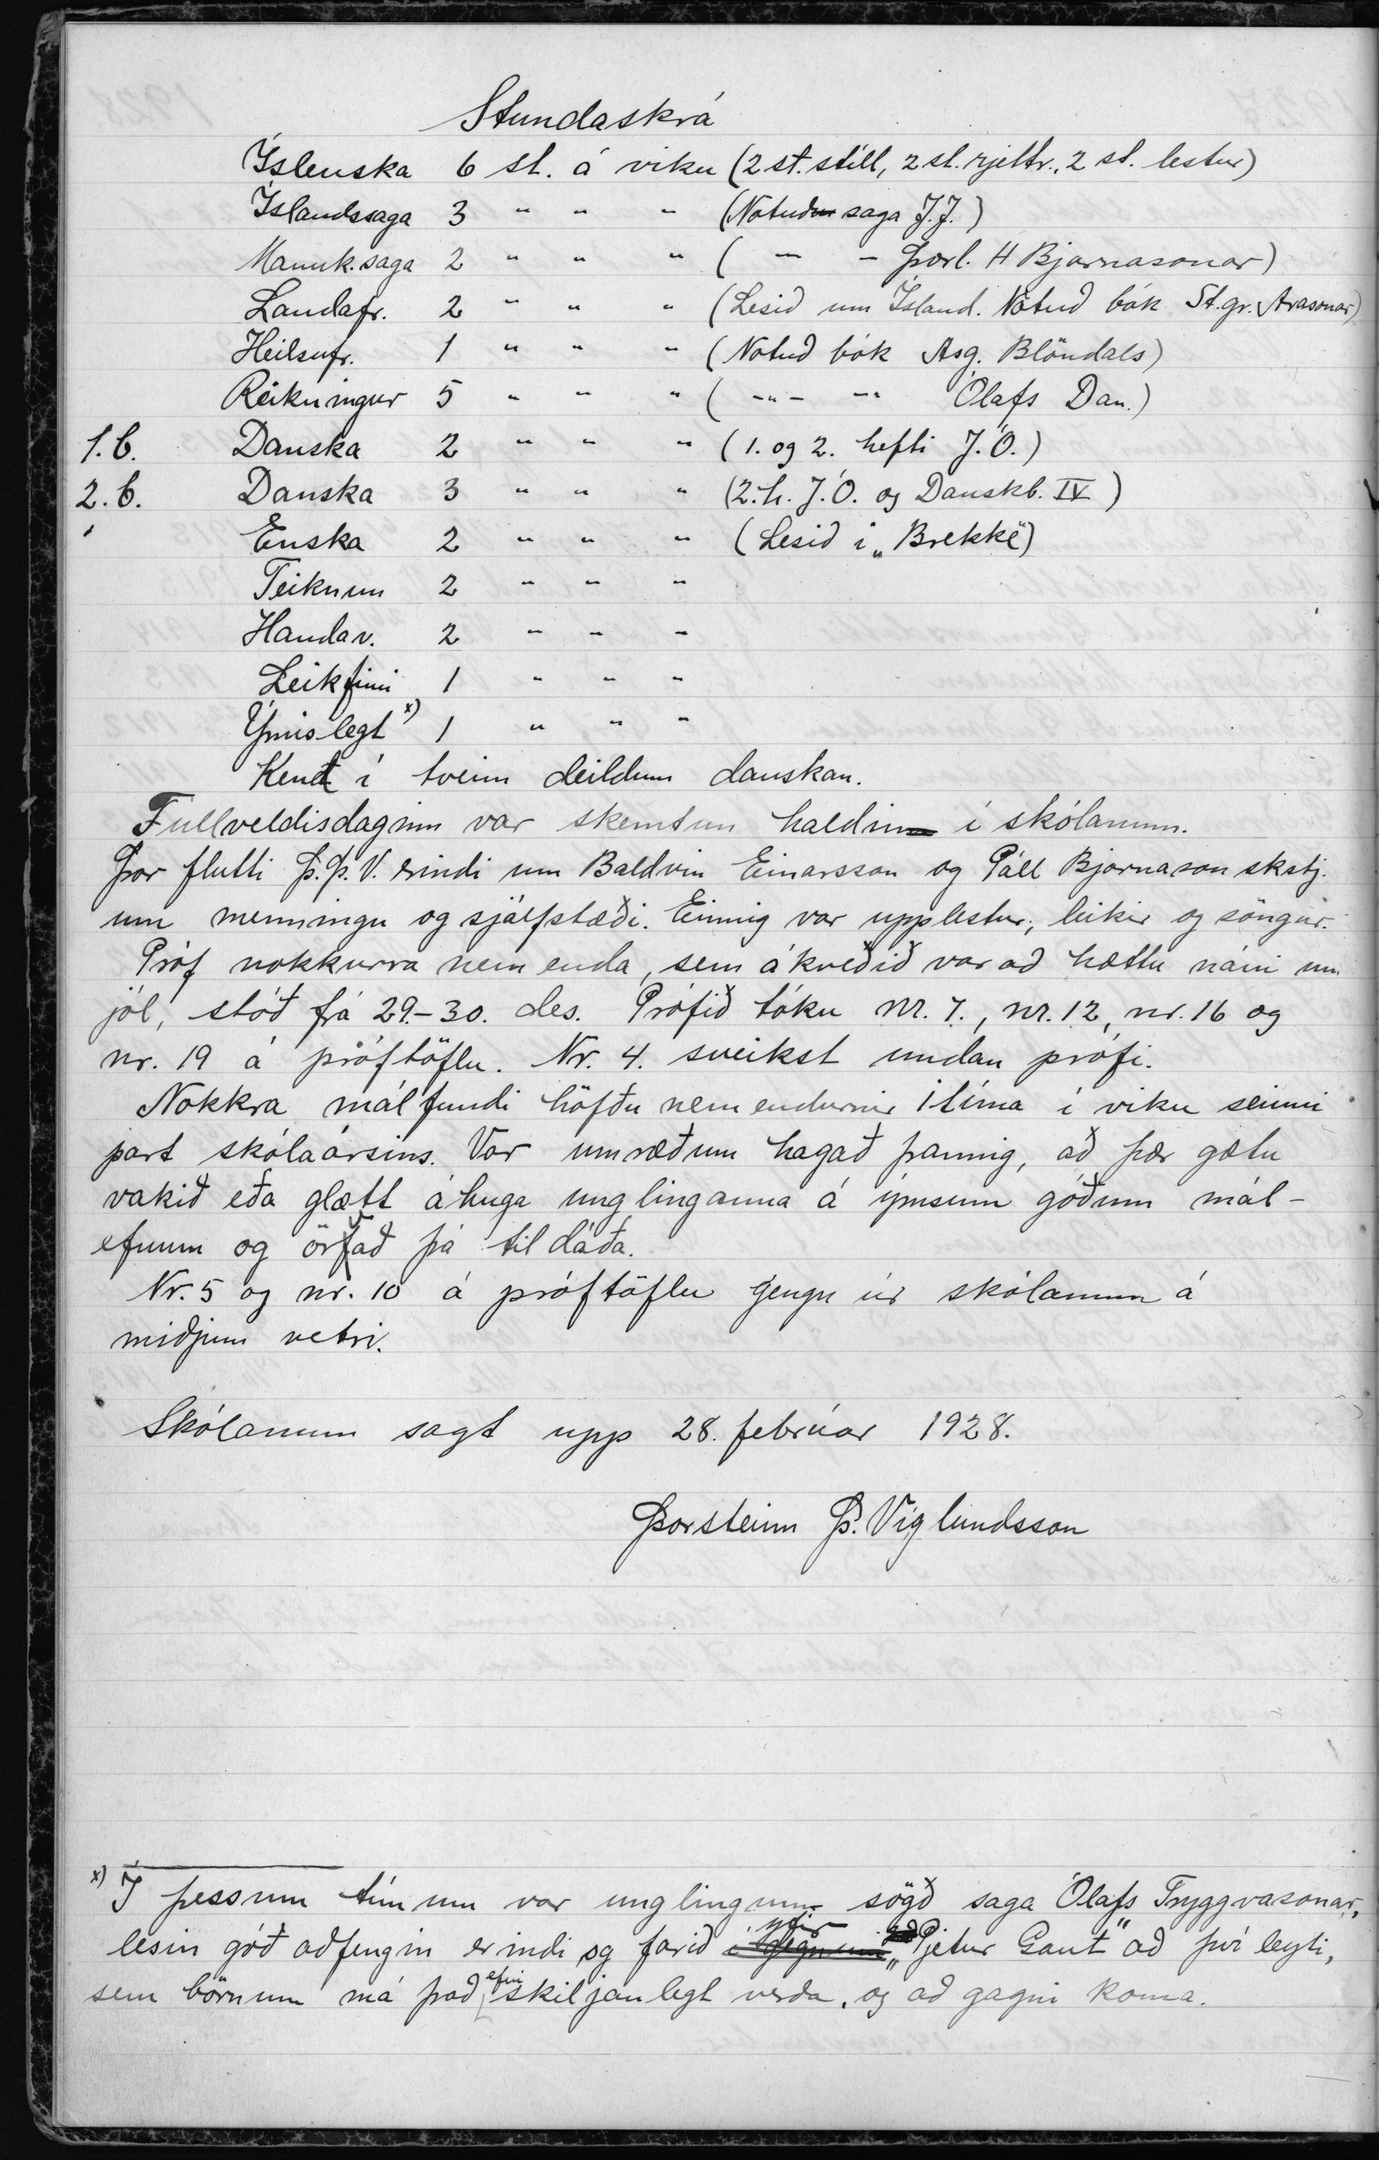 Stundaskrá
Íslenska 6 st. á viku (2 st. stíll, 2 st. rjettr., 2 st. lestur)
Íslandssaga 3 " " " (Notuð saga J.J.)
Mannk.saga 2 " " " ( — — Þorl. H Bjarnasonar)
Landafr. 2 " " " (Lesið um Ísland. Notuð bók St.gr. Arasonar)
Heilsufr. 1 " " " (Notuð bók Ásg. Blöndals)
Reikningur 5 " " " ( -"- -"- Ólafs Dan.)
1. b. Danska 2 " " " (1. og 2. hefti J.Ó.)
2. b. Danska 3 " " " (2. h. J.Ó. og Danskb. IV)
Enska 2 " " " (Lesið í „Brekke")
Teiknun 2 " " "
Handav. 2 " " "
Leikfimi 1 " " "
Ýmislegt x) 1 " " "
Kend í tveim deildum danskan.
Fullveldisdaginn var skemtun haldin í skólanum.
Þar flutti Þ.Þ.V. erindi um Baldvin Einarsson og Páll Bjarnason skstj.
um menningu og sjálfstæði. Einnig var upplestur, leikir og söngur.
Próf nokkurra nemenda, sem ákveðið var að hættu námi um
jól, stóð frá 29.-30. des. Prófið tóku nr. 7., nr. 12, nr. 16 og
nr. 19 á próftöflu. Nr. 4. sveikst undan prófi.
Nokkra málfundi höfðu nemendurnir 1 tíma í viku seinni
part skólaársins. Var umræðum hagað þannig, að þær gætu
vakið eða glætt áhuga unglinganna á ýmsum góðum mál-
efnum og örfað þá til dáða.
Nr. 5 og nr. 10 á próftöflu gengu úr skólanum á
miðjum vetri.
Skólanum sagt upp 28. febrúar 1928.
Þorsteinn Þ. Víglundsson
x) Í þessum tímum var unglingum sögð saga Ólafs Tryggvasonar,
lesin góð aðfengin erindi og farið yfir „Pjetur Gaut" að því leyti,
sem börnum má það efni skiljanlegt verða, og að gagni koma.